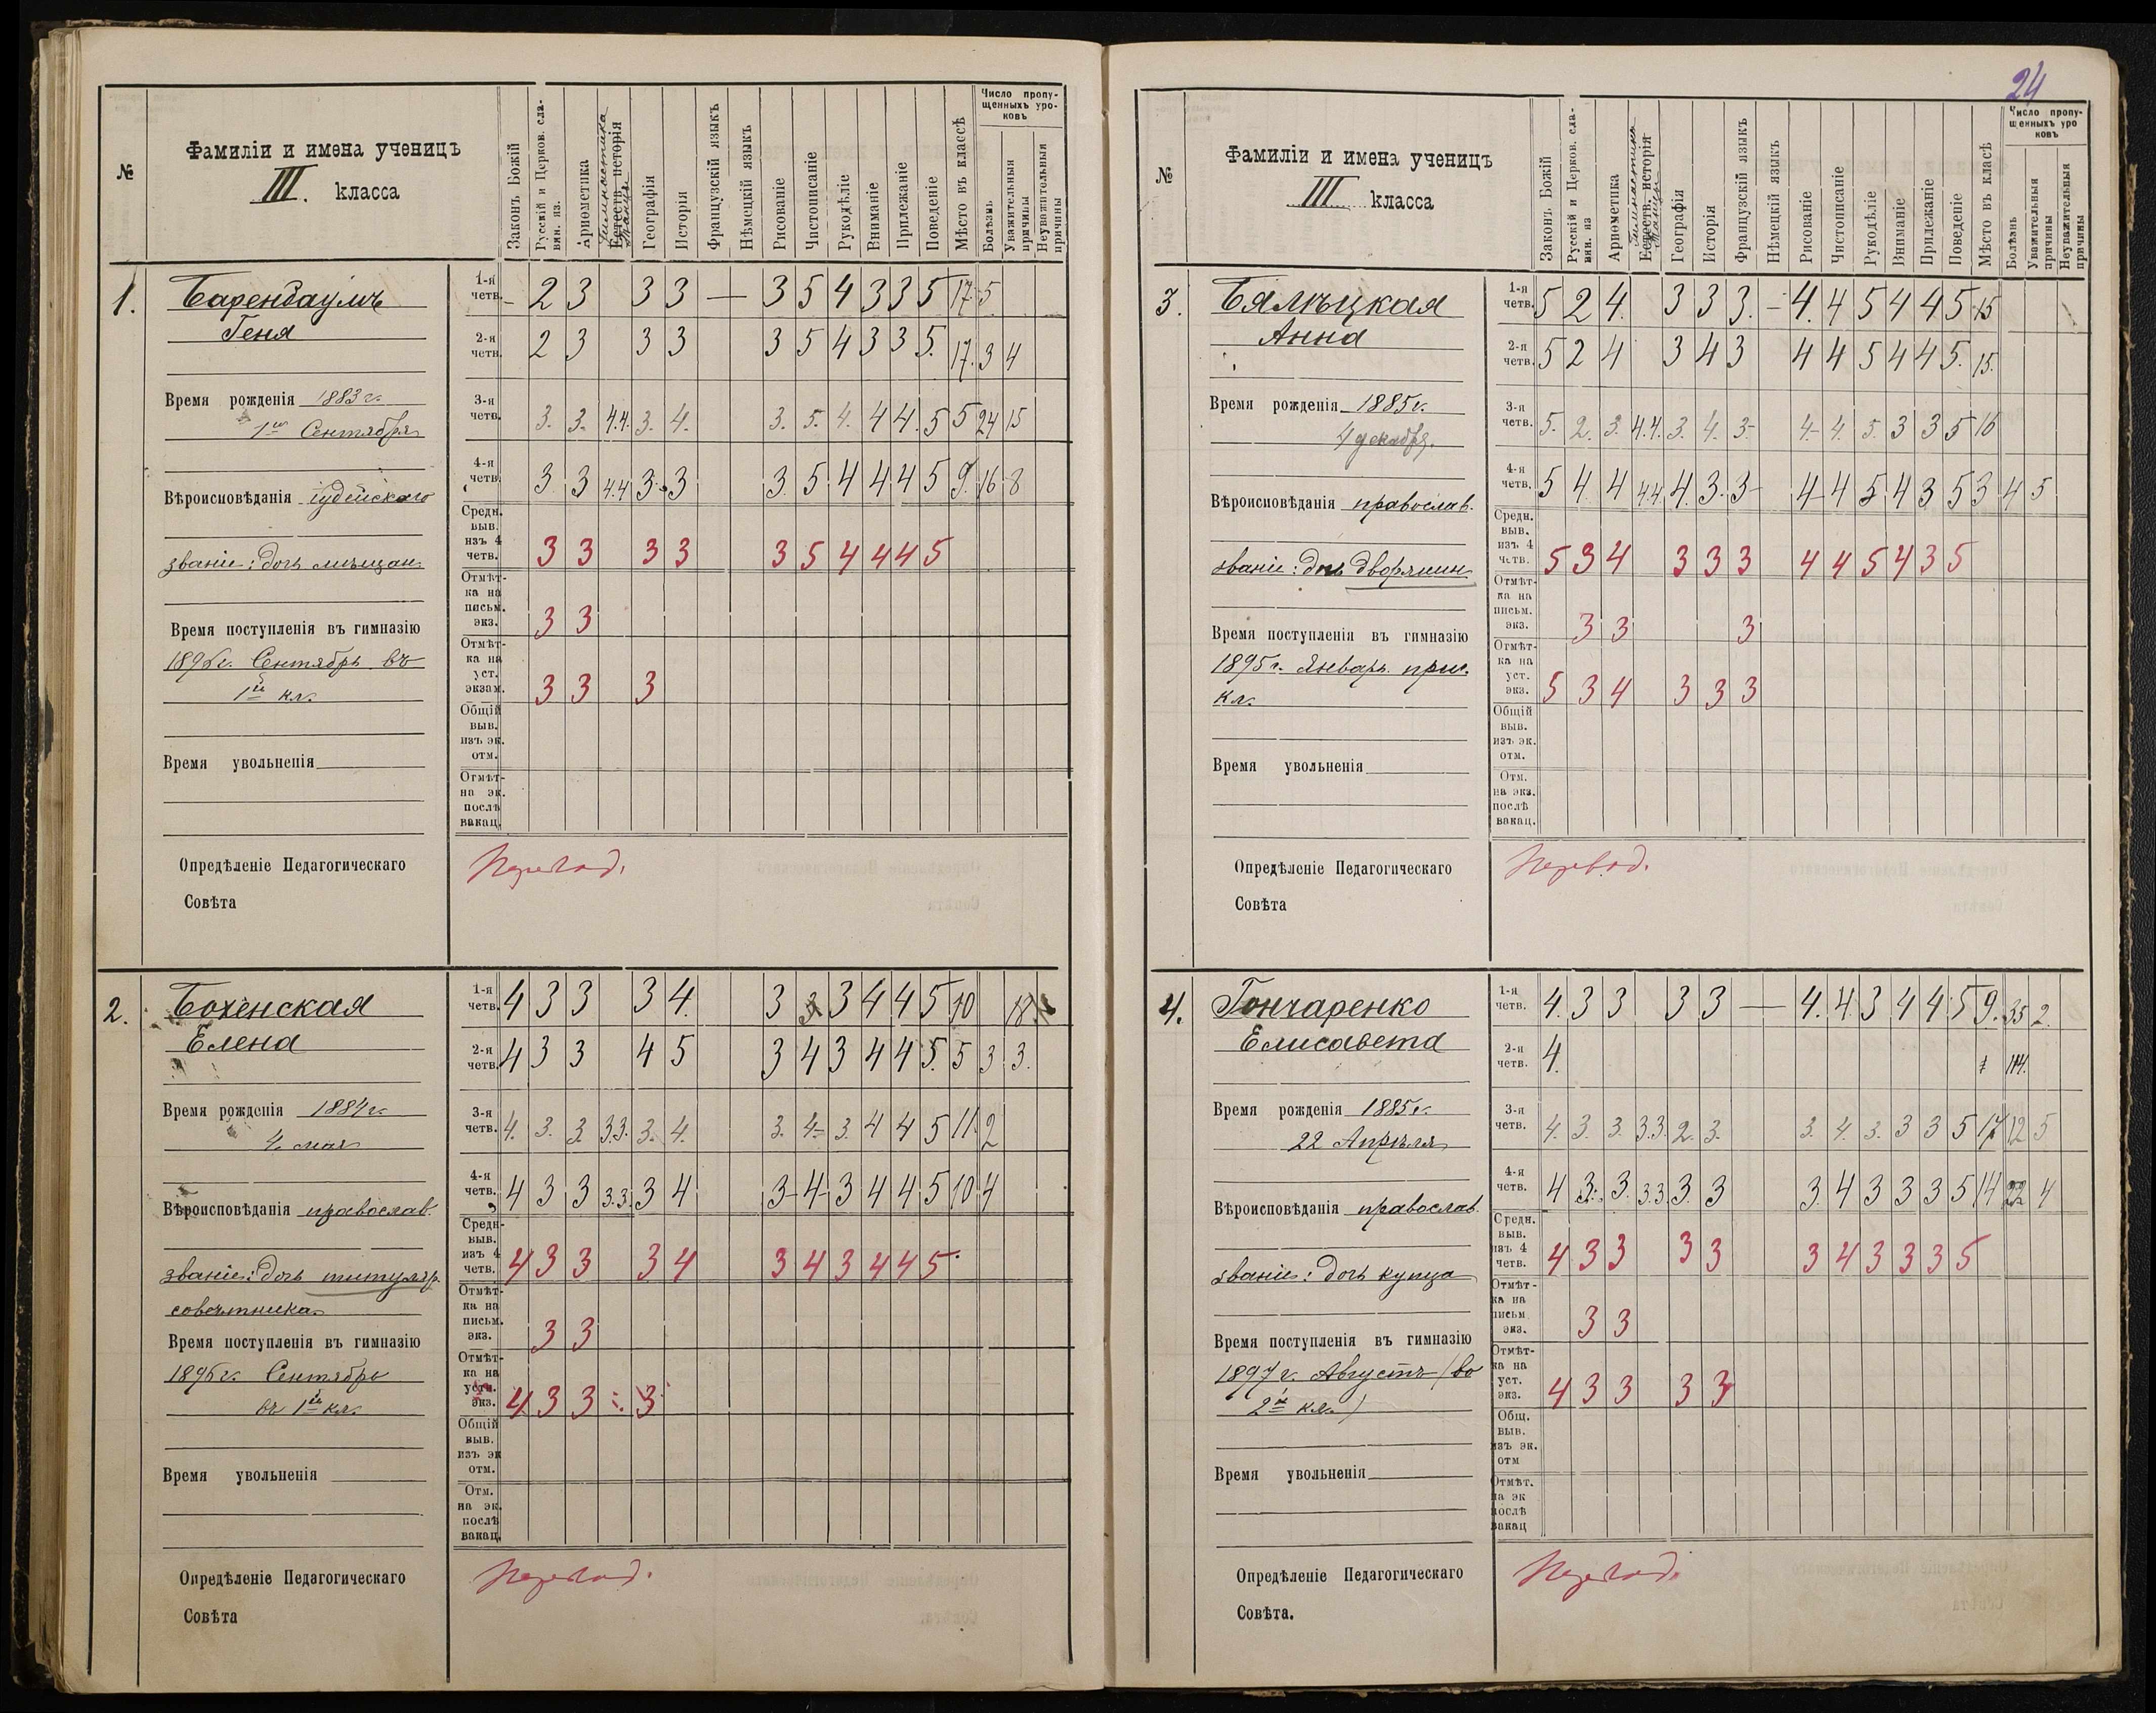 24
№
Фамиліи и имена ученицъ
III. класса
Законъ Божій
Русскій и Церков. сла-
вян. яз.
Ариѳметика
Гимнастика
Естеств. исторія
Танцы
Географія
Исторія
Французскій языкъ
Нѣмецкій языкъ
Рисованіе
Чистописаніе
Рукодѣліе
Вниманіе
Прилежаніе
Поведеніе
Мѣсто въ классѣ
Число пропу-
щенныхъ уро-
ковъ
Болѣзнь
Уважительныя
причины
Неуважительныя
причины
1.
Баренбаумъ
Геня
Время рожденія 1883 г.
1го Сентября
Вѣроисповѣданія іудейскаго
званіе: дочь мѣщан.
Время поступленія въ гимназію
1896 г. Сентябрь въ
1й кл.
Время увольненія
1-я
четв. – 2 3 3 3 — 3 5 4 3 3 5 17 5
2-я
четв. 2 3 3 3 3 5 4 3 3 5. 17. 3 4
3-я
четв. 3. 3. 4.4. 3. 4. 3. 5. 4. 4 4. 5 5 24 15
4-я
четв. 3 3 4.4 3. 3 3. 5 4 4 4 5 9. 16 8
Средн.
выв.
изъ 4
четв. 3 3 3 3 3 5 4 4 4 5
Отмѣт-
ка на
письм.
экз. 3 3
Отмѣт-
ка на
уст.
экзам. 3 3 3
Общій
выв.
изъ эк.
отм.
Отмѣт-
на эк.
послѣ
вакац.
Опредѣленіе Педагогическаго
Совѣта
Перевод.
2.
Бохенская
Елена
Время рожденія 1884 г.
4. мая
Вѣроисповѣданія православ.
званіе: дочь титуляр.
совѣтника.
Время поступленія въ гимназію
1896 г. Сентябрь
въ 1й кл.
Время увольненія
1-я
четв. 4 3 3 3 4. 3 3 3 4 4 5 10 18
2-я
четв. 4 3 3 4 5 3 4 3 4 4 5. 5 3 3.
3-я
четв. 4. 3. 3. 3.3. 3. 4. 3. 4- 3. 4 4 5 11. 2
4-я
четв. 4 3 3 3.3. 3 4 3- 4- 3 4 4 5 10 4
Средн-
выв.
изъ 4
четв. 4 3 3 3 4 3 4 3 4 4 5.
Отмѣт-
ка на
письм.
экз. 3 3
Отмѣт-
ка на
уст.
экз. 4 3 3 3
Общій
выв.
изъ эк
отм.
Отм.
на эк.
послѣ
вакац.
Опредѣленіе Педагогическаго
Совѣта
Перевод.
№
Фамиліи и имена ученицъ
III класса
Законъ Божій
Русскій и Церков. сла-
вян. яз
Ариѳметика
Гимнастика
Естеств. исторія
Танцы
Географія
Исторія
Французскій языкъ
Нѣмецкій языкъ
Рисованіе
Чистописаніе
Рукодѣліе
Вниманіе
Прилежаніе
Поведеніе
Мѣсто въ класѣ
Число пропу-
щенныхъ уро
ковъ
Болѣзнь
Уважительныя
причины
Неуважительныя
причины
3.
Бялѣцкая
Анна
Время рожденія 1885 г.
4 декабря.
Вѣроисповѣданія православ.
званіе: дочь дворянин.
Время поступленія въ гимназію
1895 г. Январь. приг.
кл.
Время увольненія
1-я
четв. 5 2 4. 3 3 3. – 4. 4 5 4 4 5 15
2-я
четв. 5 2 4 3 4 3 4 4 5 4 4 5. 15.
3-я
четв. 5. 2. 3. 4.4. 3. 4. 3- 4- 4. 5. 3 3 5 16
4-я
четв. 5 4 4 4.4. 4. 3. 3- 4- 4 5 4 3 5 3 4 5
Средн.
выв.
изъ 4
четв. 5 3 4 3 3 3 4 4 5 4 3 5
Отмѣт-
ка на
письм.
экз. 3 3 3
Отмѣт-
ка на
уст.
экз. 5 3 4 3 3 3
Общій
выв.
изъ эк.
отм.
Отм.
на экз.
послѣ
вакац.
Опредѣленіе Педагогическаго
Совѣта
Перевод.
4.
Гончаренко
Елисавета
Время рожденія 1885 г.
22 Апрѣля
Вѣроисповѣданія православ.
званіе: дочь купца
Время поступленія въ гимназію
1897 г. Августъ (во
2й кл.)
Время увольненія
1-я
четв. 4. 3 3 3 3 — 4. 4. 3 4 4 5 9. 35 2.
2-я
четв. 4. 114.
3-я
четв. 4. 3. 3. 3.3. 2. 3. 3. 4. 3. 3 3 5 17 12 5
4-я
четв. 4 3. 3. 3.3. 3. 3 3. 4 3 3 3 5 14 22 4
Средн.
выв.
изъ 4
четв. 4 3 3 3 3 3 4 3 3 3 5
Отмѣт-
ка на
письм
экз. 3 3
Отмѣт-
ка на
уст.
экз. 4 3 3 3 3
Общ.
выв.
изъ эк.
отм
Отмѣт.
на эк
послѣ
вакац
Опредѣленіе Педагогическаго
Совѣта.
Перевод.